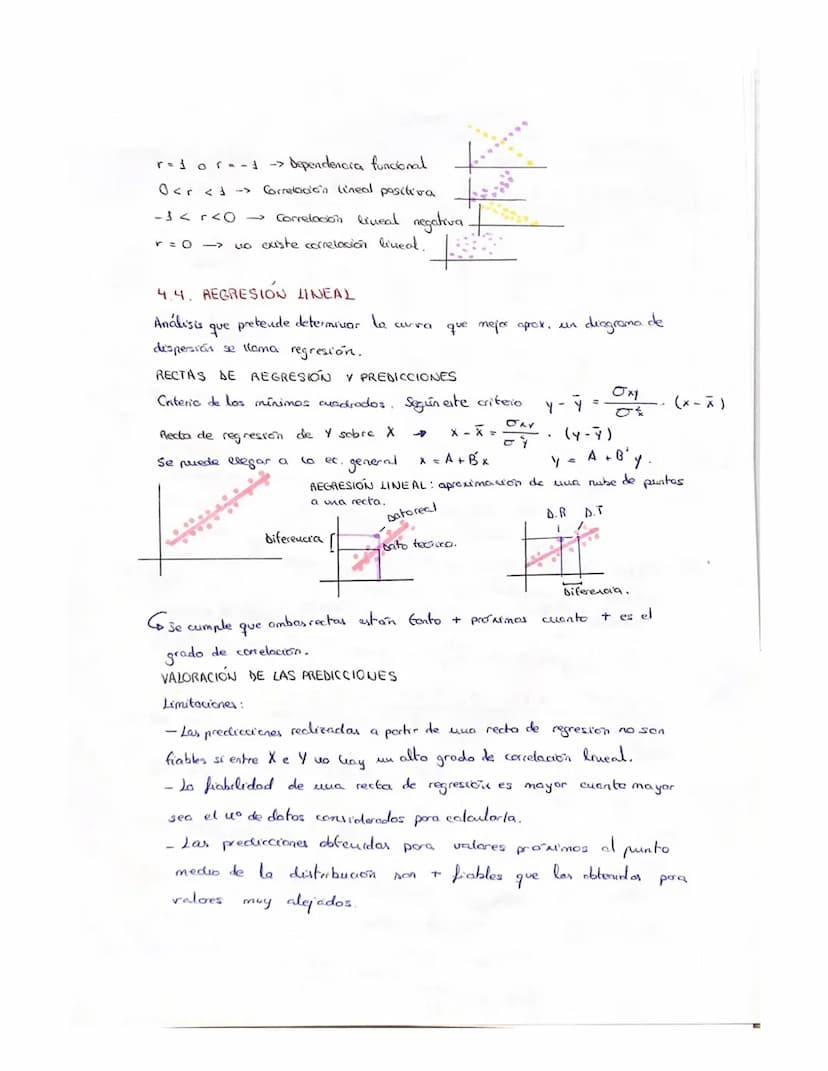 r = 1 o r = -1 -> Dependencia funcional
0 < r < 1 -> Correlación lineal positiva
-1 < r < 0 -> Correlación lineal negativa
r = 0 -> no existe correlación lineal.
4.4. REGRESIÓN LINEAL
Análisis que pretende determinar la curva que mejor aprox. un diagrama de
dispersión se llama regresión.
RECTAS DE REGRESIÓN Y PREDICCIONES
Criterio de los mínimos cuadrados. Según este criterio y - ȳ = σxy / σ²x · (x - x̄)
Recta de regresión de Y sobre X -> x - x̄ = σxy / σ²y · (y - ȳ)
Se puede llegar a la ec. general x = A + B'x y = A + B'y.
REGRESIÓN LINEAL: aproximación de una nube de puntos
a una recta.
Dato real
D.R D.T
Diferencia
Dato teórico.
Diferencia.
↳ Se cumple que ambas rectas están tanto + próximas cuanto + es el
grado de correlación.
VALORACIÓN DE LAS PREDICCIONES
Limitaciones:
- Las predicciones realizadas a partir de una recta de regresión no son
fiables si entre X e Y no hay un alto grado de correlación lineal.
- La fiabilidad de una recta de regresión es mayor cuanto mayor
sea el nº de datos considerados para calcularla.
- Las predicciones obtenidas para valores próximos al punto
medio de la distribución son + fiables que las obtenidas para
valores muy alejados.